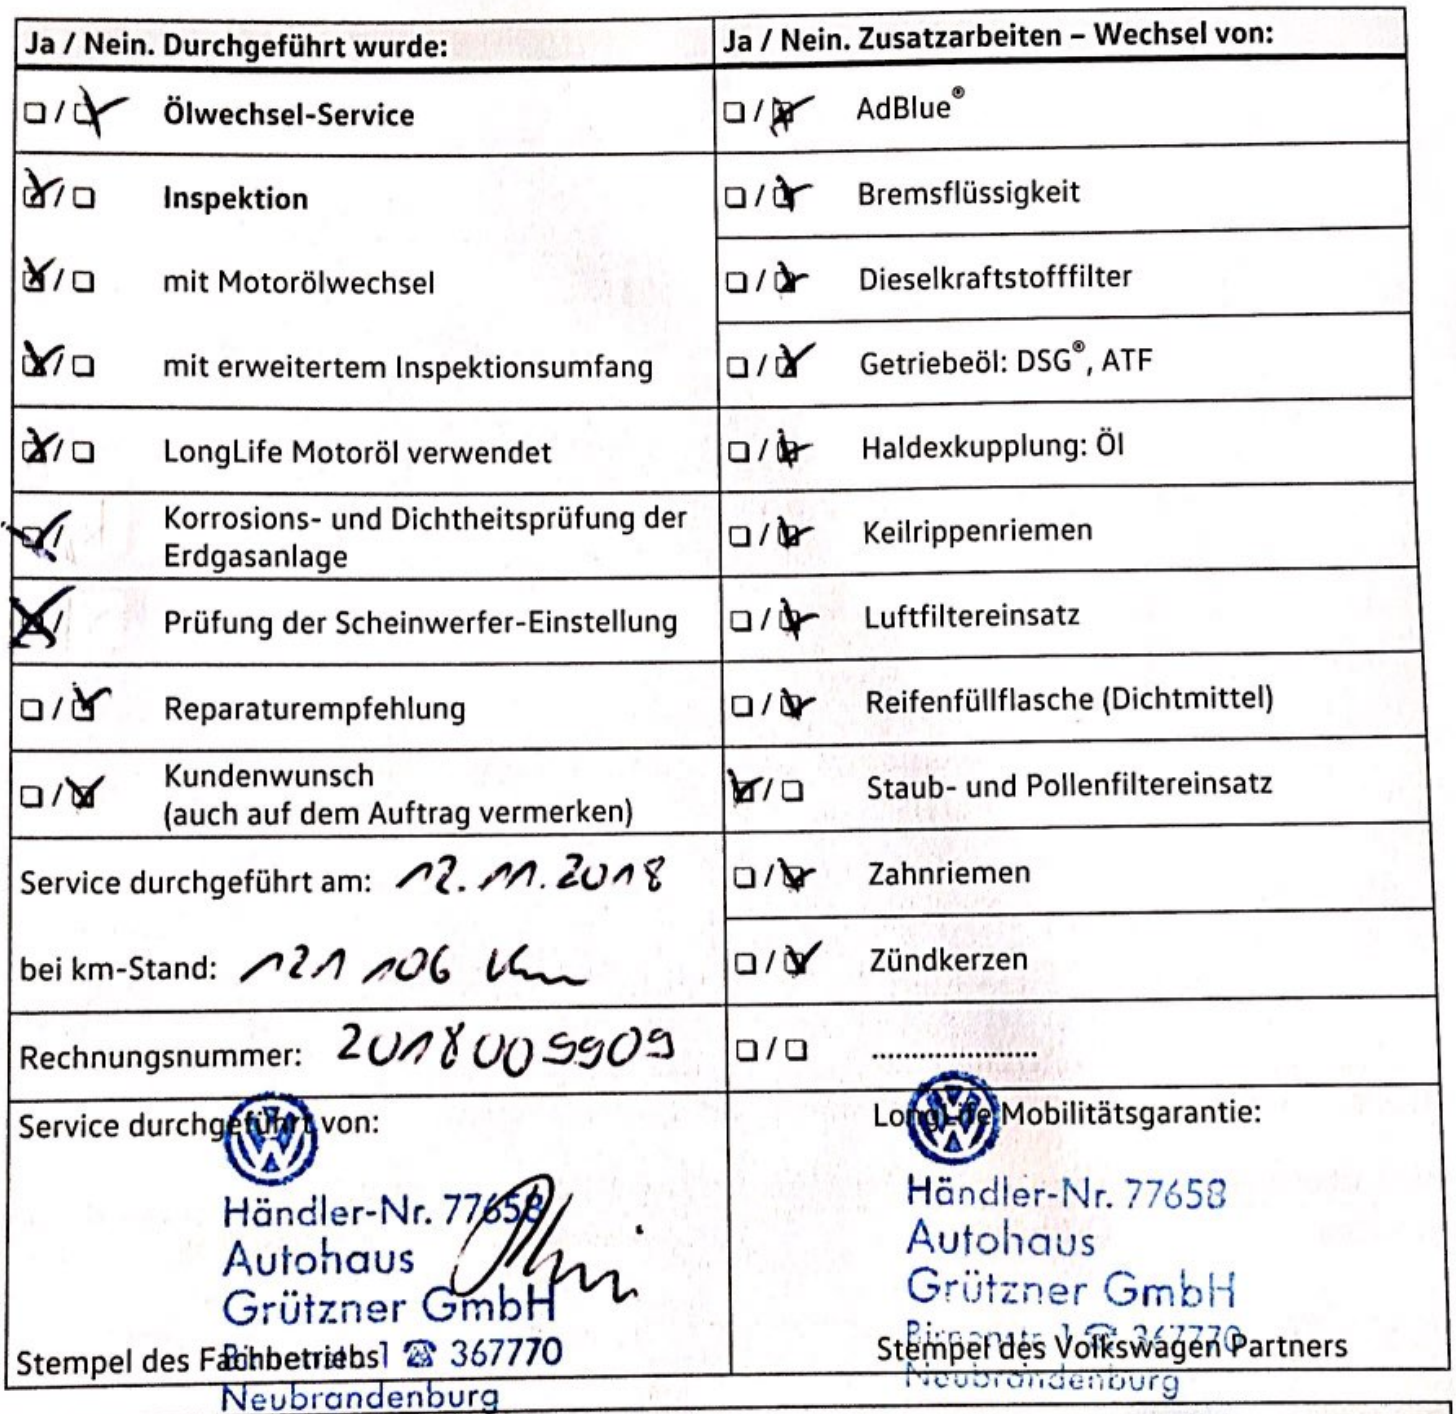 Ja / Nein. Durchgeführt wurde:
☐ / ☒ Ölwechsel-Service
☒ / ☐ Inspektion
☒ / ☐ mit Motorölwechsel
☒ / ☐ mit erweitertem Inspektionsumfang
☒ / ☐ LongLife Motoröl verwendet
☒ / Korrosions- und Dichtheitsprüfung der
Erdgasanlage
☒ / Prüfung der Scheinwerfer-Einstellung
☐ / ☒ Reparaturempfehlung
☐ / ☒ Kundenwunsch
(auch auf dem Auftrag vermerken)
Service durchgeführt am: 12.11.2018
bei km-Stand: 121 106 km
Rechnungsnummer: 2018009909
Service durchgeführt von:
Händler-Nr. 77658
Autohaus
Grützner GmbH
1 ☎ 367770
Stempel des Fachbetriebs
Neubrandenburg
Ja / Nein. Zusatzarbeiten – Wechsel von:
☐ / ☒ AdBlue®
☐ / ☒ Bremsflüssigkeit
☐ / ☒ Dieselkraftstofffilter
☐ / ☒ Getriebeöl: DSG®, ATF
☐ / ☒ Haldexkupplung: Öl
☐ / ☒ Keilrippenriemen
☐ / ☒ Luftfiltereinsatz
☐ / ☒ Reifenfüllflasche (Dichtmittel)
☒ / ☐ Staub- und Pollenfiltereinsatz
☐ / ☒ Zahnriemen
☐ / ☒ Zündkerzen
☐ / ☐ .....................
LongLife Mobilitätsgarantie:
Händler-Nr. 77658
Autohaus
Grützner GmbH
1 ☎ 367770
Stempel des Volkswagen Partners
Neubrandenburg